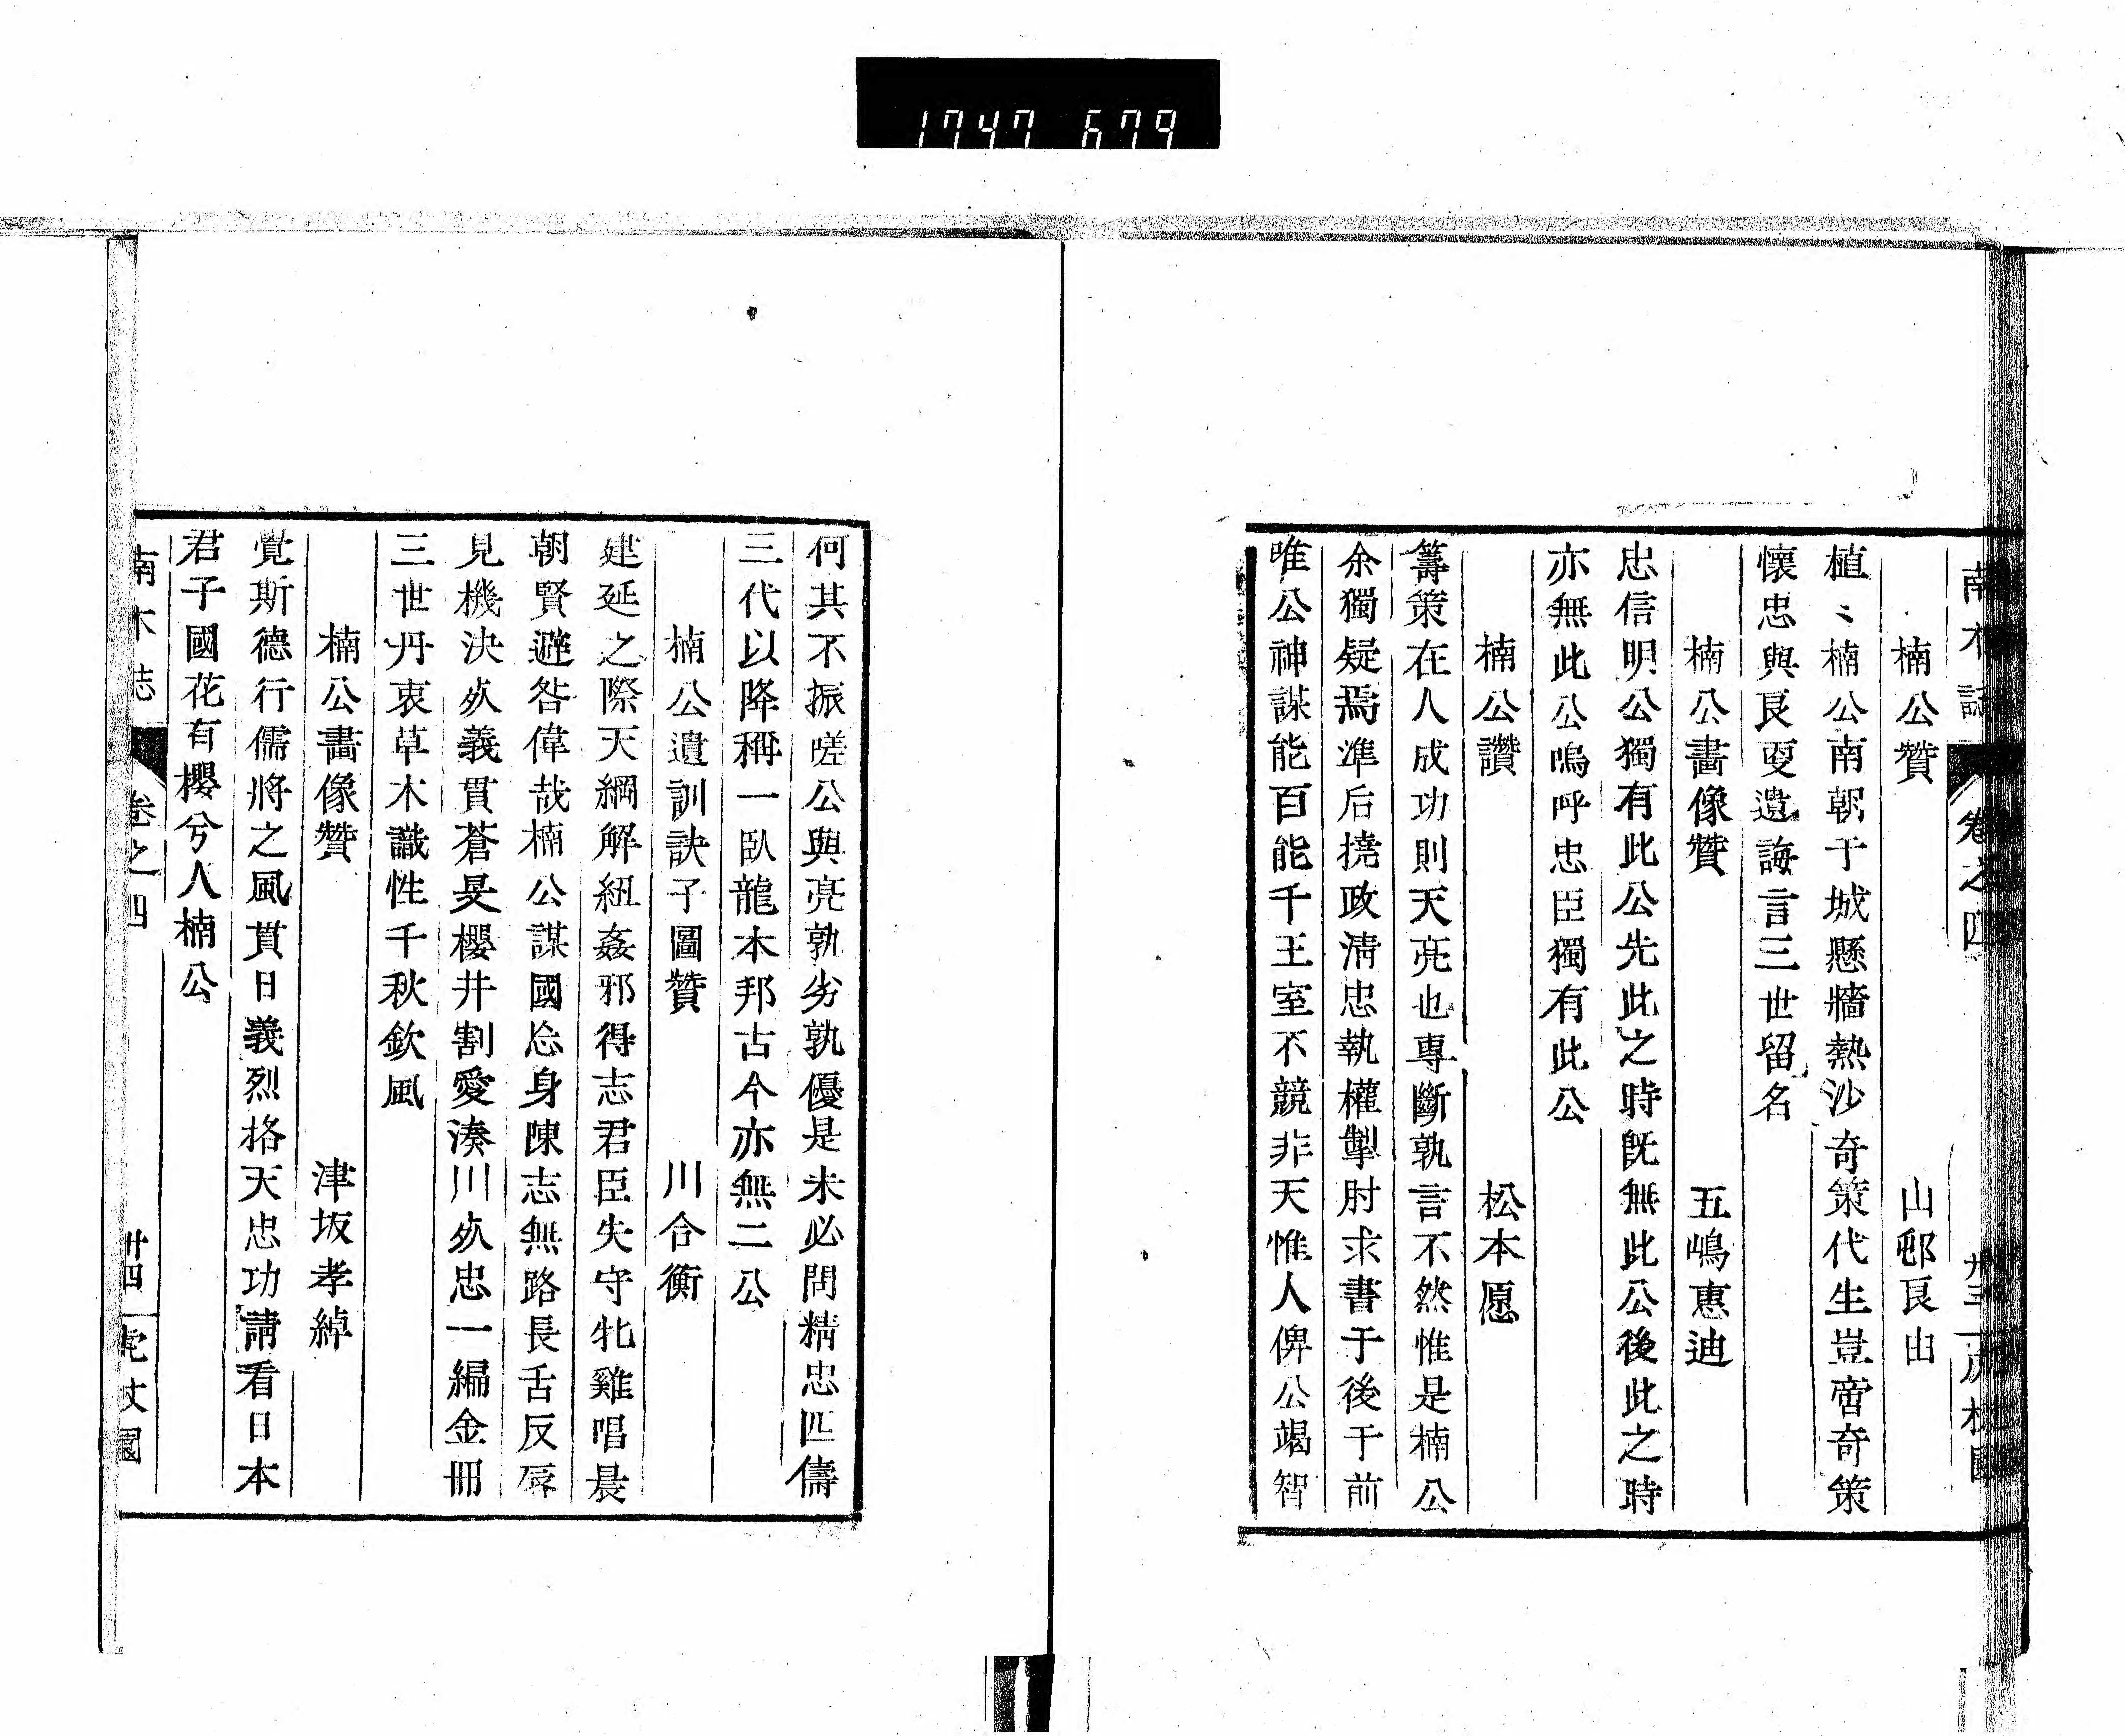 1747 679
南木誌 卷之四 卅三
楠公贊 山邨良由
植〻楠公南朝于城懸牆熱沙奇策代生豈啻奇策
懷忠與良叓遺誨言三世留名
楠公畫像贊 五嶋惠迪
忠信明公獨有此公先此之時既無此公後此之時
亦無此公嗚呼忠臣獨有此公
楠公讚 松本愿
籌策在人成功則天亮也專斷孰言不然惟是楠公
余獨疑焉準后撓政淸忠執權掣肘求書于後于前
唯公神謀能百能千王室不競非天惟人俾公竭智
何其不振嗟公與亮孰劣孰優是未必問精忠匹儔
三代以降稱一臥龍本邦古今亦無二公
楠公遺訓訣子圖贊 川合衡
建延之際天綱解紐姦邪得志君臣失守牝雞唱晨
朝賢避咎偉哉楠公謀國忩身陳志無路長舌反唇
見機決夊義貫蒼旻櫻井割愛湊川夊忠一編金冊
三世丹衷草木識性千秋欽風
楠公畫像贊 津坂孝綽
覺斯德行儒將之風貫日義烈格天忠功請看日本
君子國花有櫻兮人楠公
南木志 卷之四 卄四